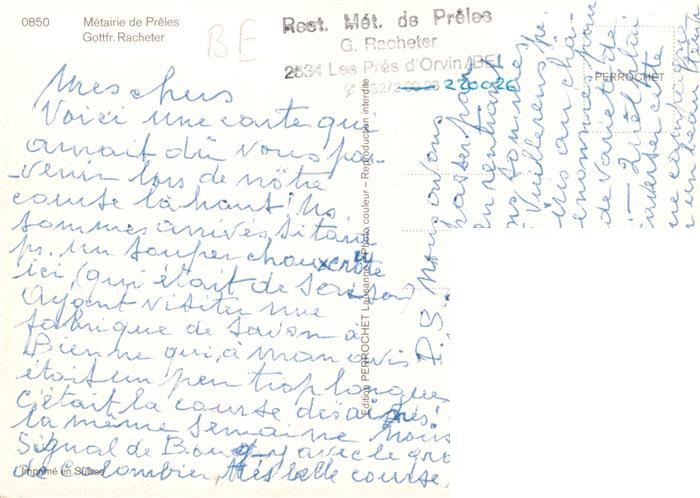 0850 Métairie de Prêles
Gottfr. Racheter
BE
Rest. Mét. de Prêles
G. Racheter
2534 Les Prés d'Orvin/BE
220026
PERROCHET
Mes chers
Voici une carte qui
aurait dû vous par-
venir lors de nôtre
course là haut! Ns
sommes arrivés si tard
pr. un souper choucroûte
ici, (qui était de saison)
Ayant visiter une
fabrique de savon à
Bienne qui, à mon avis
était un peu trop longue
c'était la course des aînés!
la même semaine nous
Signal de Bougy avec le gro
de Colombier, très belle course,
Edition PERROCHET Lausanne – Photo couleur – Reproduction interdite
Imprimé en Suisse
P.S. Nous avons
passer par
en rentrant
ns sommes
Vuillerens pr.
iris au châ-
de variétés de
une campagne